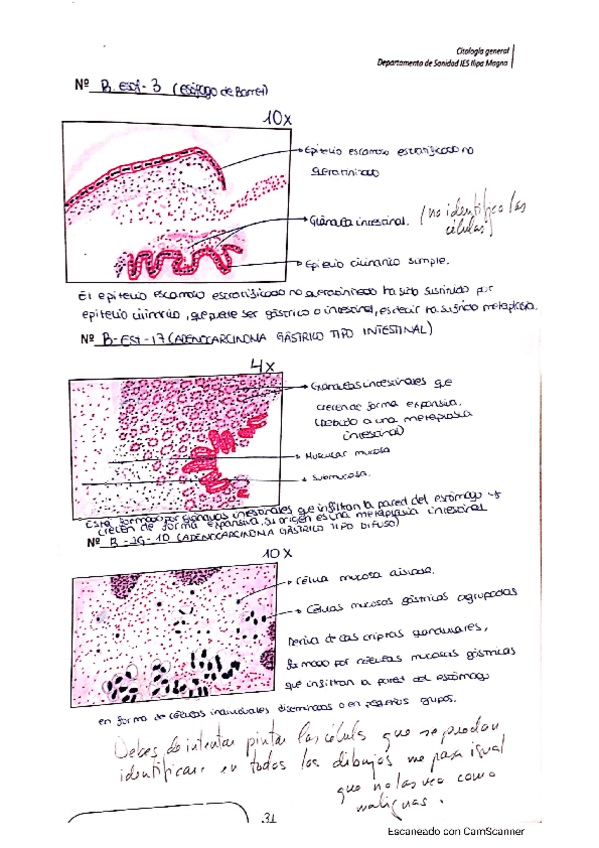 Citología general
Departamento de Sanidad IES Ilipa Magna
Nº B. ESF- 3 (Esófago de Barret)
10x
Epitelio escamoso estratificado no
queratinizado
Glándula intestinal.
(no identifico las
células)
Epitelio cilíndrico simple.
El epitelio escamoso estratificado no queratinizado ha sido sustituido por
epitelio cilíndrico, que puede ser gástrico o intestinal, es decir ha sufrido metaplasia.
Nº B-EST-17 (ADENOCARCINOMA GÁSTRICO TIPO INTESTINAL)
4x
Glándulas intestinales que
crecen de forma expansiva.
(debido a una metaplasia
intestinal)
Muscular mucosa
Submucosa.
Está formado por glándulas intestinales que infiltran la pared del estómago y
crecen de forma expansiva, su origen es una metaplasia intestinal
Nº B-JG-10 (ADENOCARCINOMA GÁSTRICO TIPO DIFUSO)
10x
Célula mucosa aislada.
Células mucosas gástricas agrupadas
Deriva de las criptas glandulares,
formado por células mucosas gástricas
que infiltran la pared del estómago
en forma de células individuales diseminadas o en pequeños grupos.
Debes de intentar pintar las células que se puedan
identificar en todos los dibujos me pasa igual
que no las veo como
malignas.
31
Escaneado con CamScanner